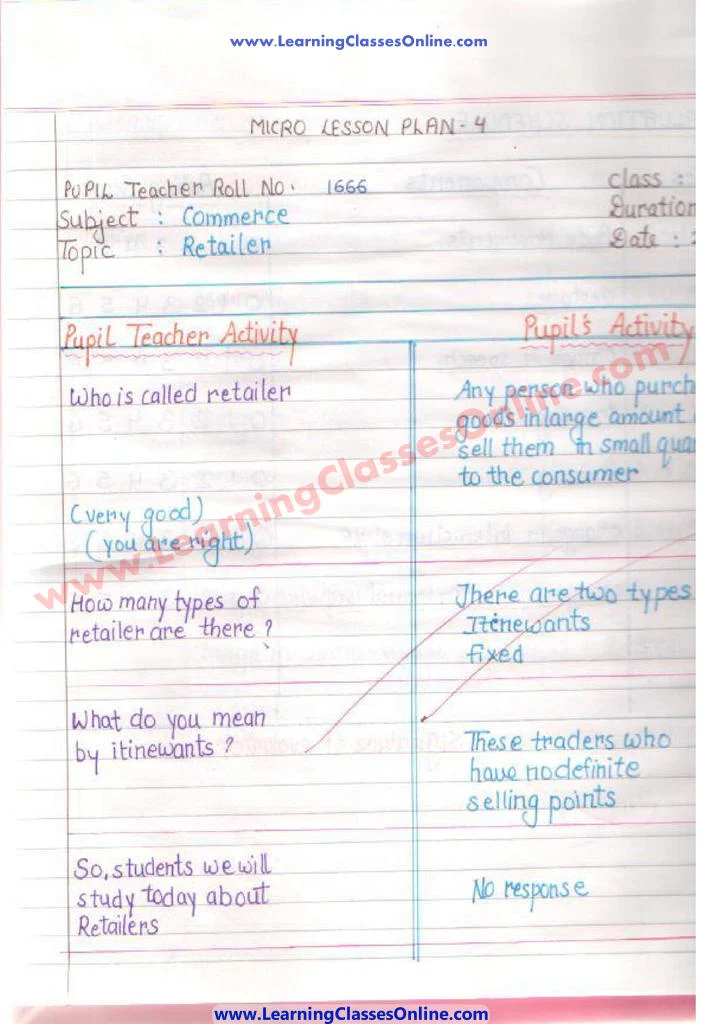 www.LearningClassesOnline.com
MICRO LESSON PLAN - 4
PUPIL Teacher Roll No. 1666 Class :
Subject : Commerce Duration
Topic : Retailer Date :
Pupil Teacher Activity Pupil's Activity
Who is called retailer
Any person who purch
goods in large amount
sell them in small qua
to the consumer
(very good)
(you are right)
www.LearningClassesOnline.com
How many types of
retailer are there ?
There are two types
Itinewants
fixed
What do you mean
by itinewants ?
These traders who
have no definite
selling points
So, students we will
study today about
Retailers
No response
www.LearningClassesOnline.com